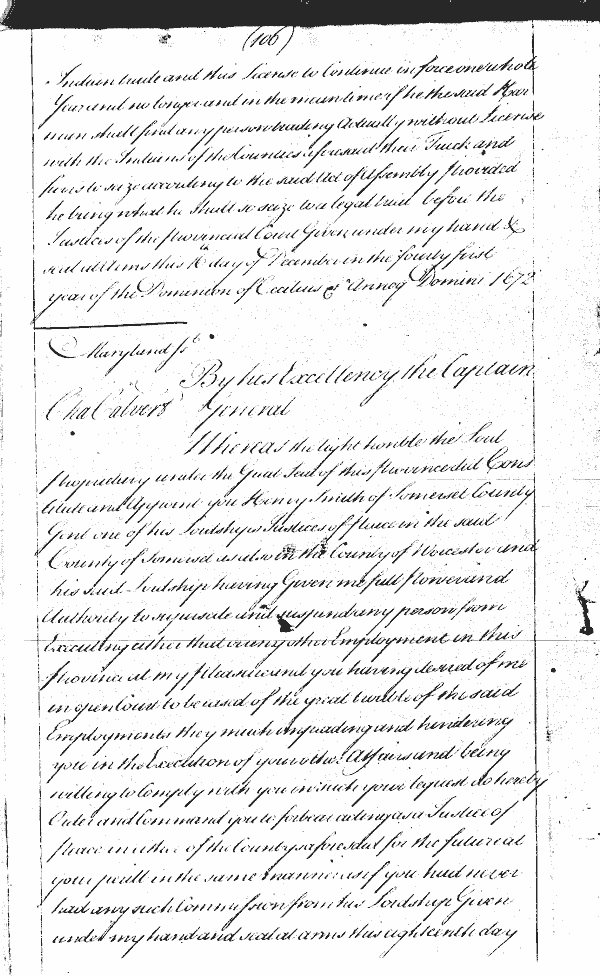 (106)
Indian trade and this License to Continue in force one whole
Year and no longer and in the mean time if he the said Har
man shall find any person trading Actually without License
with the Indians of the Counties aforesaid their Truck and
to seize according to the said Act of Assembly Provided
he bring what he shall so seize to a legal trial before the
Justices of the Provincial Court Given under my hand &
seal at Arms this day of December in the fourty first
year of the Dominion of Cecilius &c Annoq Domini 1672
Maryland ss
By his Excellency the Captain
Cha Calvert General
Whereas the right honble the Lord
Proprietary under the Great Seal of this Province did Cons
titute and Appoint you Henry Smith of Somerset County
Gent one of his Lordships Justices of Peace in the said
County of Somerset as also in the County of Worcester and
his said Lordship having Given me full Power and
Authority to and suspend any person from
Executing either that or any other Employment in this
Province at my Pleasure and you having desired of me
in open Court to be eased of the great burthle of the said
Employments they much impeading and hindering
you in the Execution of your other Affairs and being
willing to Comply with you in such your request do hereby
Order and Command you to forbear acting as a Justice of
Peace in either of the Countys aforesaid for the future at
your perill in the same manner as if you had never
had any such Commission from his Lordship Given
under my hand and seal at arms this eighteenth day